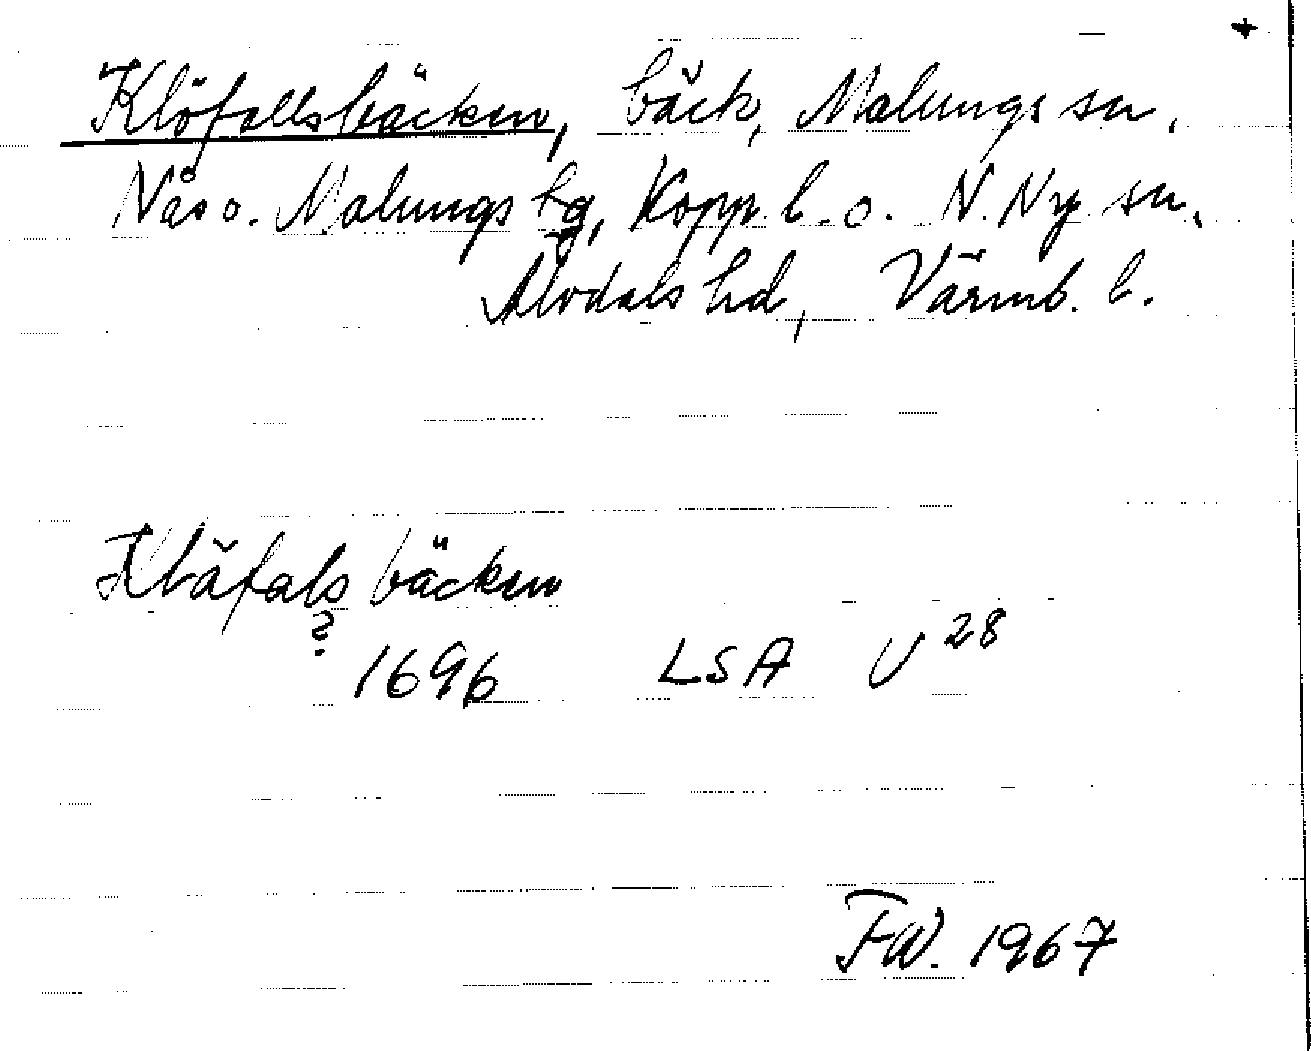 Klöfallsbäcken, bäck, Malungs sn,
Näs o. Malungs tg, Kopp. l. o. N. Ny sn,
Älvdals hd, Värmb. l.
Klåfals bäcken
?
1696 LSA U 28
FW. 1967